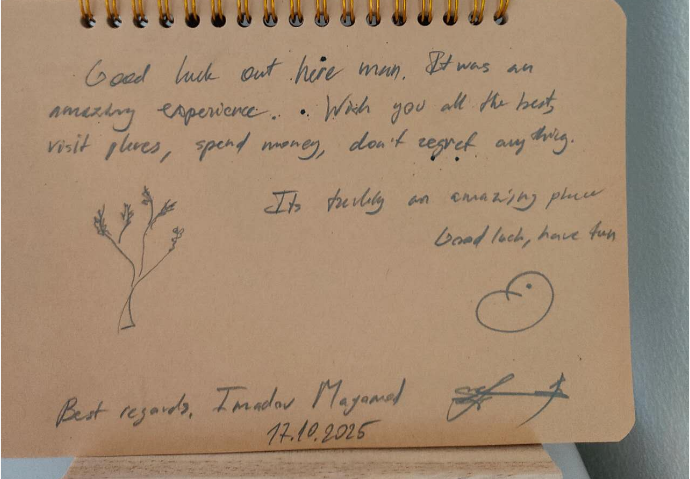 Good luck out here man. It was an
amazing experience. Wish you all the best,
visit places, spend money, don't regret anything.
Its an amazing place
Good luck, have fun
Best regards, Imadov Magamed
17.10.2025